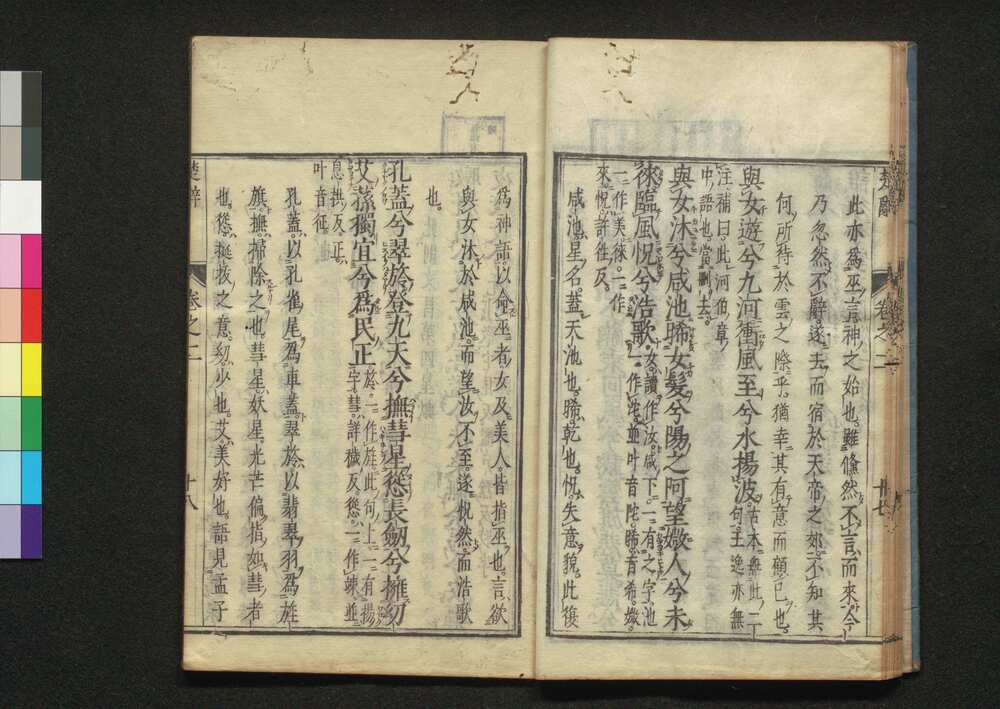 楚辭
卷之二
廿七
此亦為巫言神之始也雖儵然不言而來今
乃忽然不辭遂去而宿於天帝之郊不知其
何所待於雲之際乎猶幸其有意而顧已也。
與女遊兮九河衝風至兮水揚波古本無此二句王逸亦無
注補曰此河伯章中語也當刪去。
與女沐兮咸池晞女髮兮陽之阿望媺人兮未
徠臨風怳兮浩歌女讀作汝。咸下。一有之字池一作沱並叶音陀。晞音希。媺
一作美。徠。一作來怳許往反。
咸池星名。蓋天池也。晞乾也。怳失意貌。此復
為神語。以命巫者女及美人。皆指巫也。言欲
與女沐於咸池。而望汝不至。遂怳然而浩歌
也。
孔蓋兮翠旍登九天兮撫彗星慫長劒兮擁幼
艾蓀獨宜兮為民正旍。一作旌此句上一有揚字彗。詳穢反。慫一作竦。並
息拱反。正叶音征。
孔蓋。以孔雀尾為車蓋。翠旍。以翡翠羽為旌
旗。撫。掃除之也。彗星。妖星。光芒偏指。如彗者
也。慫。挺拔之意。幼少也。艾。美好也。語見孟子
楚辭
卷之二
十八